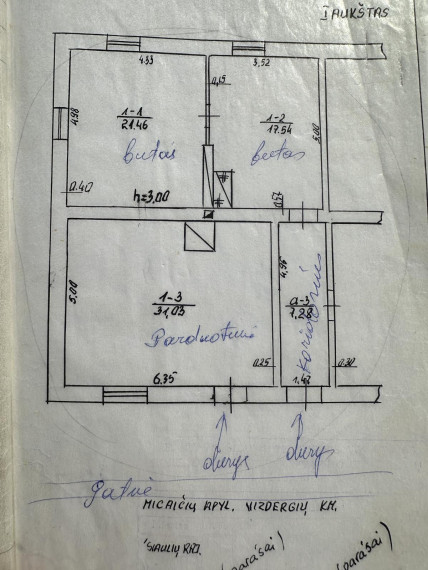 I AUKŠTAS
4.33
3,52
0,15
1-1
21.46
4,98
butas
1-2
17.54
5,00
butas
0.40
h=3,00
0,57
1-3
31,03
5,00
Parduotuvė
4,95
a-3
7,28
koridorius
0.25
0.30
6.35
1.42
durys
durys
Gatvė
MICAIČIŲ APYL. VIZDERGIŲ KM.
ŠIAULIŲ RAJ.
(parašai)
(parašai)